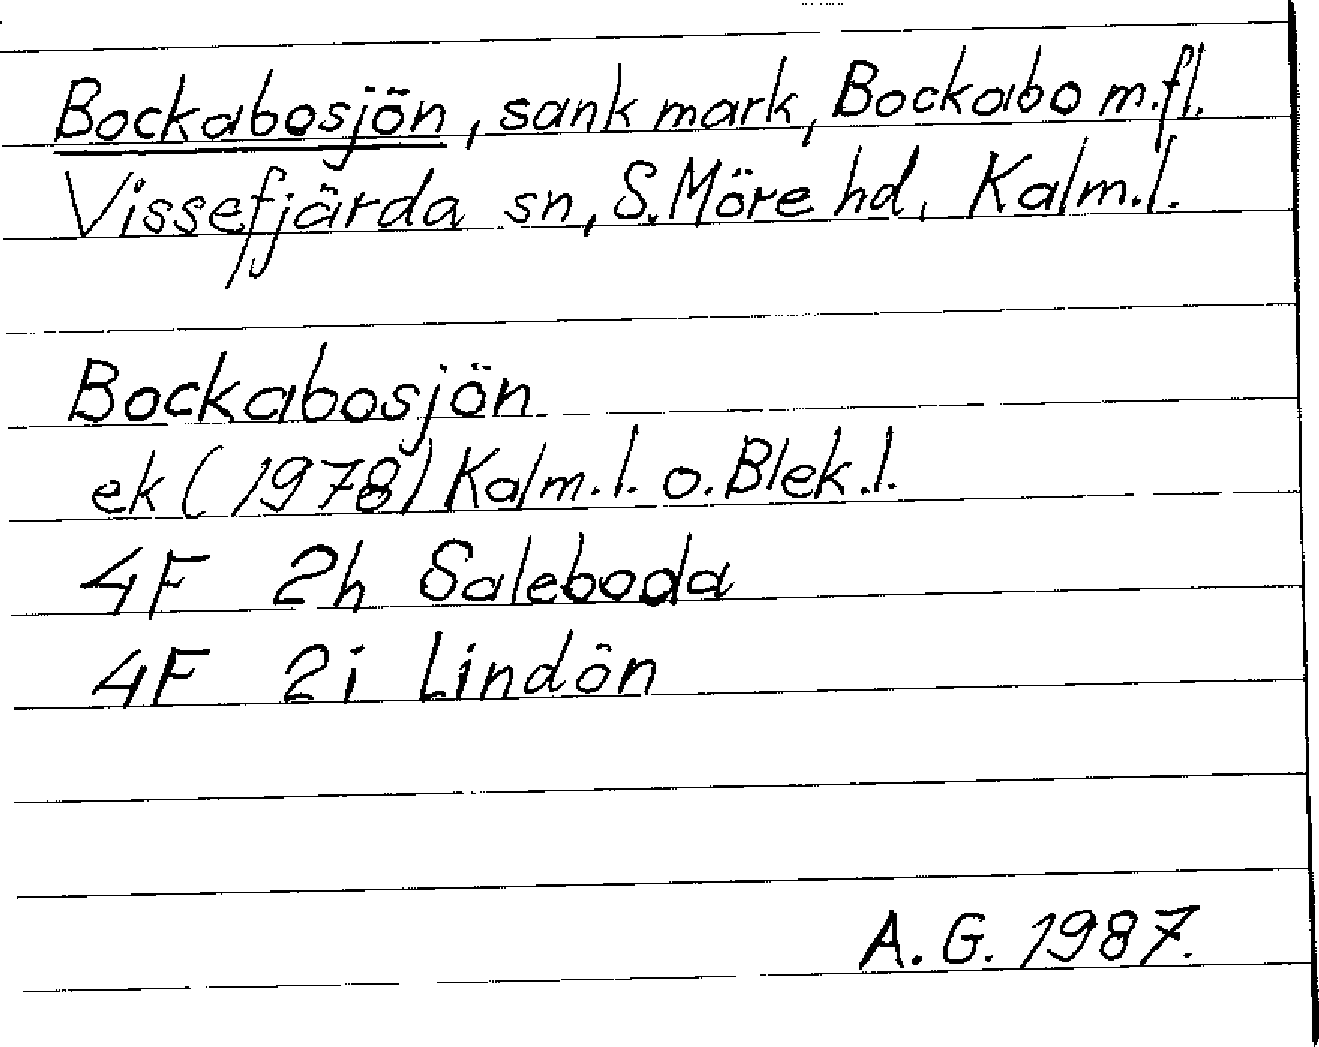 Bockabosjön, sank mark, Bockabo m.fl.
Vissefjärda sn, S. Möre hd, Kalm.l.
Bockabosjön
ek (1978) Kalm.l. o. Blek.l.
4F 2h Saleboda
4F 2i Lindön
A. G. 1987.